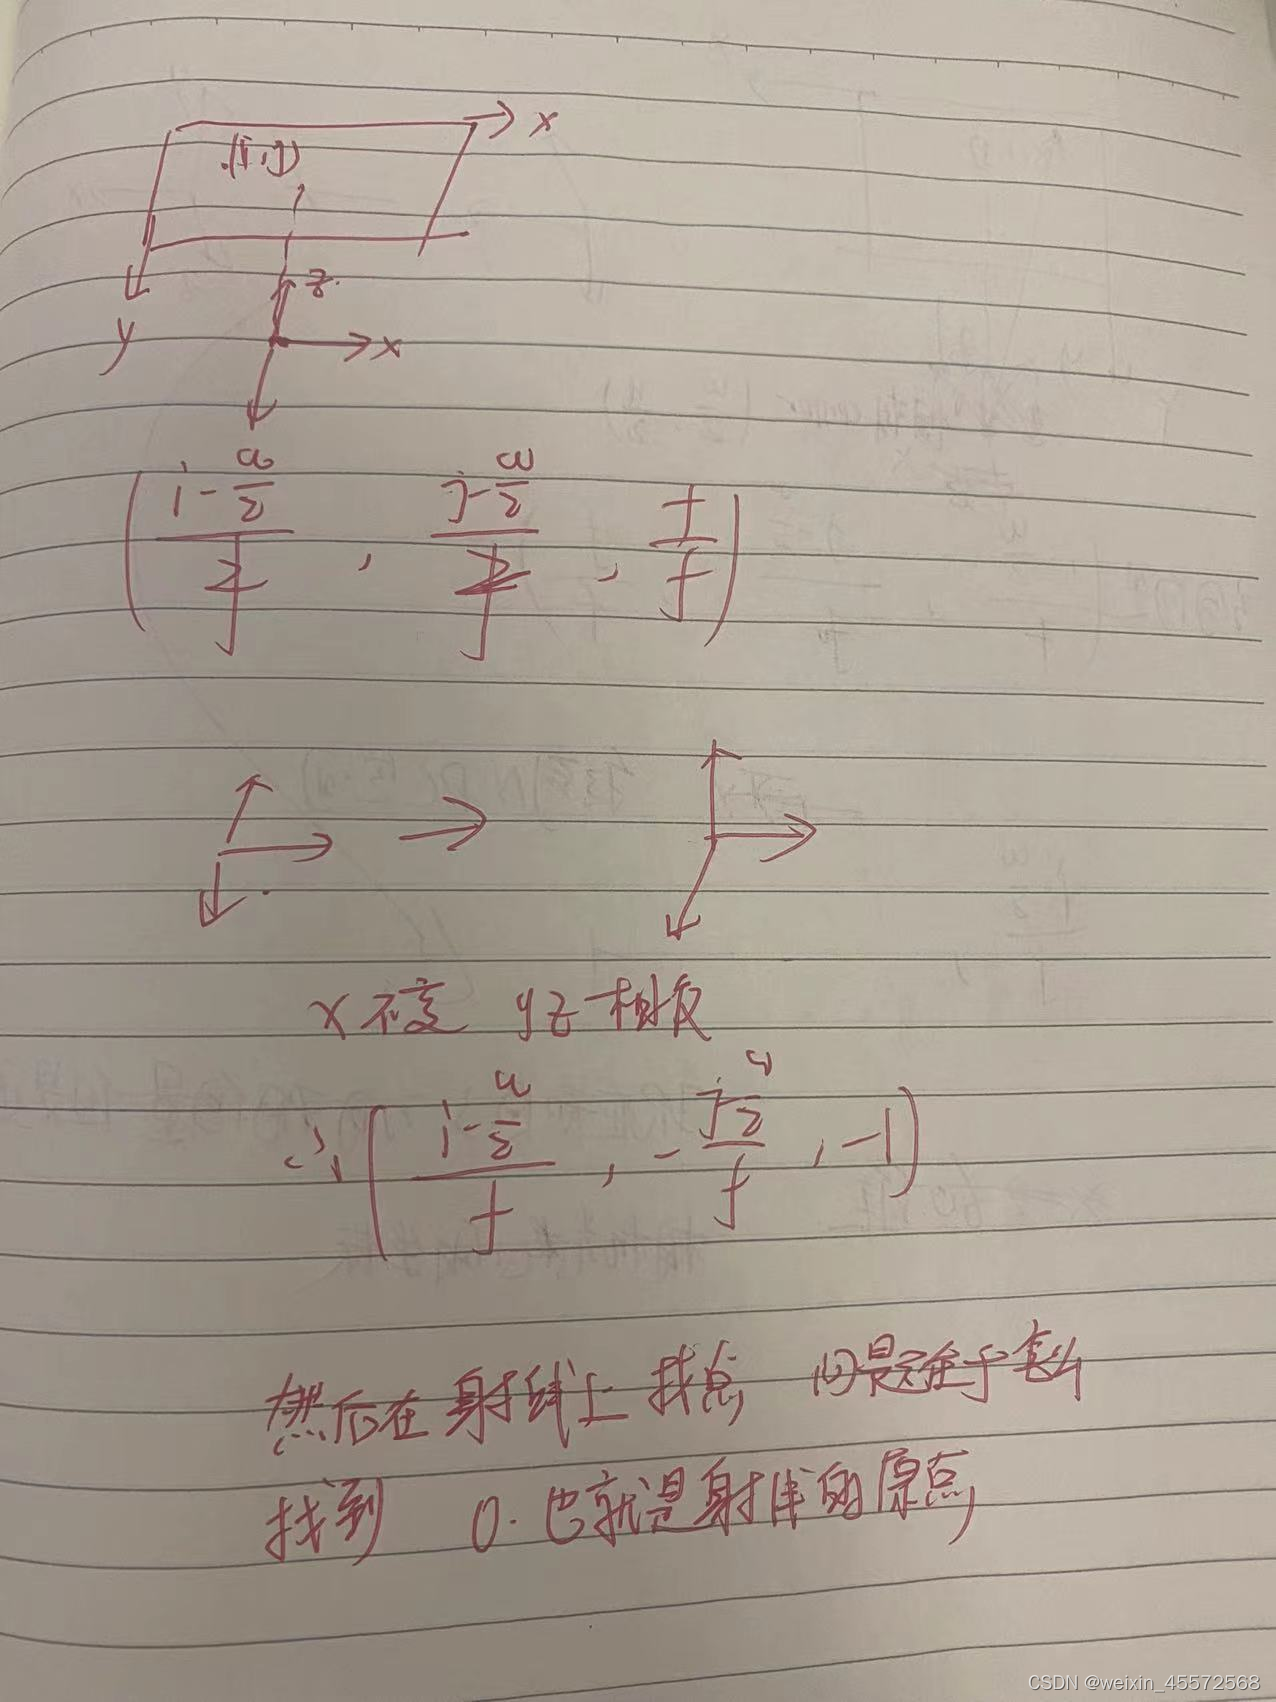 x
(i,j)
z
x
y
(i-w/2 / f, j-w/2 / f, f/f)
x不变 yz相反
∴ (i-w/2 / f, -j-w/2 / f, -1)
然后在射线上找点
找到 O. 也就是射线的原点
CSDN @weixin_45572568